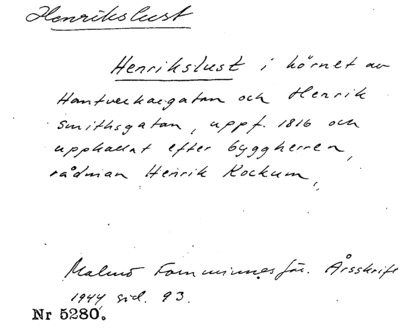 Henrikslust
Henrikslust i hörnet av
Hantverkaregatan och Henrik
Smithsgatan, uppf. 1816 och
uppkallat efter byggherren,
rådman Henrik Kockum.
Malmö Fornminnesför. Årsskrift
1944 sid. 93.
Nr 5280.